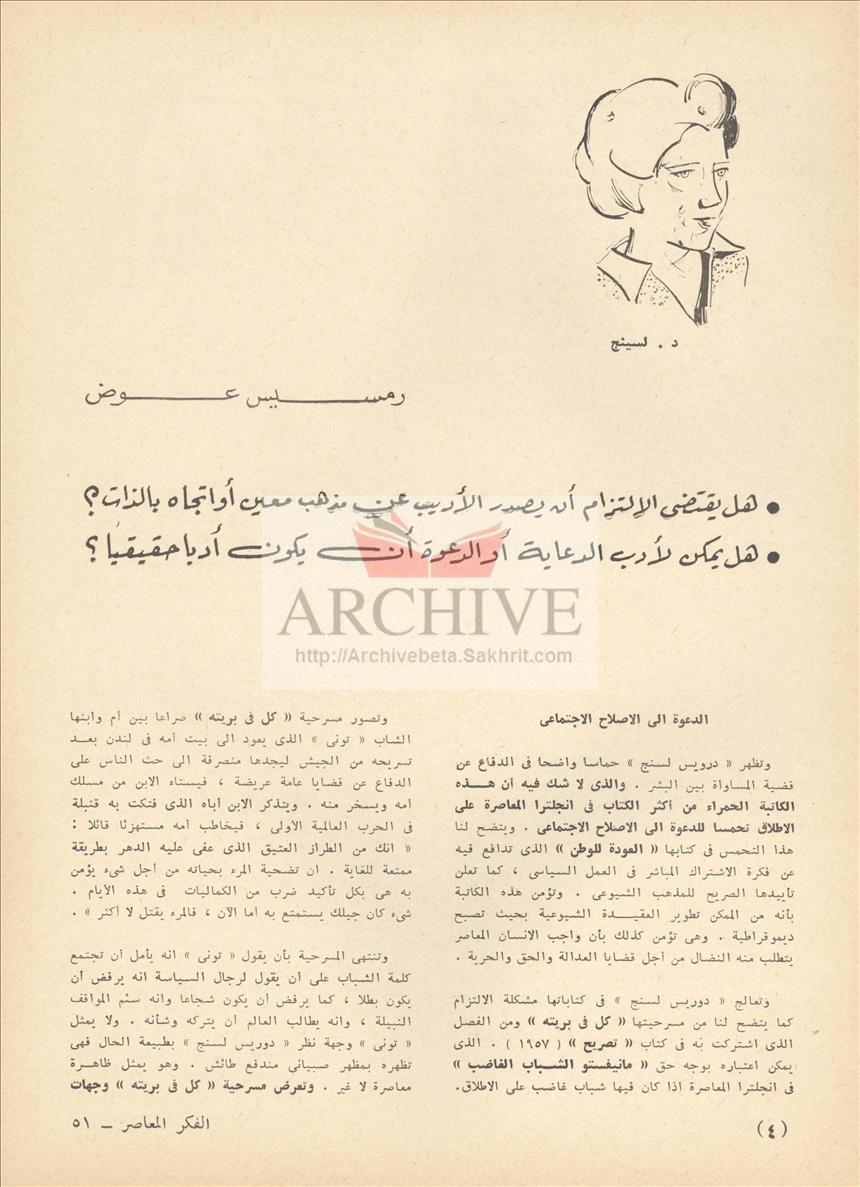 د . لسينج
رمسيس عوض
• هل يقتضى الإلتزام أن يصدر الأديب عن مذهب معين أو اتجاه بالذات ؟
• هل يمكن لأدب الدعاية أو الدعوة أن يكون أدبا حقيقيا ؟
ARCHIVE
http://Archivebeta.Sakhrit.com
الدعوة الى الاصلاح الاجتماعى
وتظهر « درويس لسنج » حماسا واضحا فى الدفاع عن
قضية المساواة بين البشر . والذى لا شك فيه أن هذه
الكاتبة الحمراء من أكثر الكتاب فى انجلترا المعاصرة على
الاطلاق تحمسا للدعوة الى الاصلاح الاجتماعى . ويتضح لنا
هذا التحمس فى كتابها « العودة للوطن » الذى تدافع فيه
عن فكرة الاشتراك المباشر فى العمل السياسى ، كما تعلن
تأييدها الصريح للمذهب الشيوعى . وتؤمن هذه الكاتبة
بأنه من الممكن تطوير العقيدة الشيوعية بحيث تصبح
ديموقراطية . وهى تؤمن كذلك بأن واجب الانسان المعاصر
يتطلب منه النضال من أجل قضايا العدالة والحق والحرية .
وتعالج « دوريس لسنج » فى كتاباتها مشكلة الالتزام
كما يتضح لنا من مسرحيتها « كل فى بريته » ومن الفصل
الذى اشتركت به فى كتاب « تصريح » ( ١٩٥٧ ) . الذى
يمكن اعتباره بوجه حق « مانيفستو الشباب الغاضب »
فى انجلترا المعاصرة اذا كان فيها شباب غاضب على الاطلاق.
وتصور مسرحية « كل فى بريته » صراعا بين أم وابنها
الشاب « تونى » الذى يعود الى بيت أمه فى لندن بعد
تسريحه من الجيش ليجدها منصرفة الى حث الناس على
الدفاع عن قضايا عامة عريضة ، فيستاء الابن من مسلك
أمه ويسخر منه . ويتذكر الابن أباه الذى فتكت به قنبلة
فى الحرب العالمية الأولى ، فيخاطب أمه مستهزئا قائلا :
« انك من الطراز العتيق الذى عفى عليه الدهر بطريقة
ممتعة للغاية . ان تضحية المرء بحياته من أجل شىء يؤمن
به هى بكل تأكيد ضرب من الكماليات فى هذه الأيام .
شىء كان جيلك يستمتع به أما الآن ، فالمرء يقتل لا أكثر » .
وتنتهى المسرحية بأن يقول « تونى » انه يأمل أن تجتمع
كلمة الشباب على أن يقول لرجال السياسة انه يرفض أن
يكون بطلا ، كما يرفض أن يكون شجاعا وانه سئم المواقف
النبيلة ، وانه يطالب العالم أن يتركه وشأنه . ولا يمثل
« تونى » وجهة نظر « دوريس لسنج » بطبيعة الحال فهى
تظهره بمظهر صبيانى مندفع طائش . وهو يمثل ظاهرة
معاصرة لا غير . وتعرض مسرحية « كل فى بريته » وجهات
(٤)
الفكر المعاصر ـ ٥١